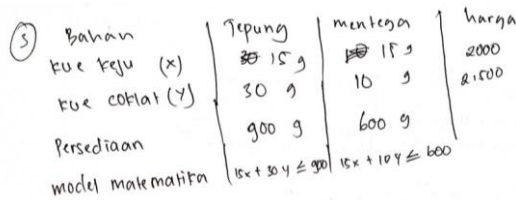 ③ Bahan Tepung mentega harga
kue keju (x) 15 g 15 g 2000
kue coklat (Y) 30 g 10 g 2.500
Persediaan 900 g 600 g
model matematika 15x + 30 y ≤ 900 15x + 10 y ≤ 600